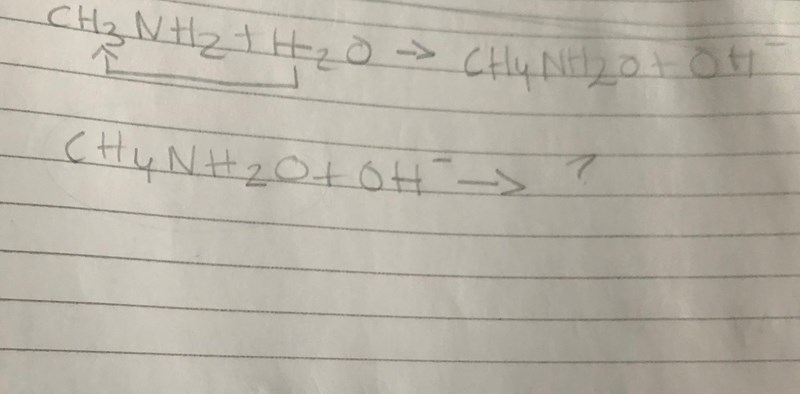 CH3NH2 + H2O → CH4NH2O + OH⁻
CH4NH2O + OH⁻ → ?